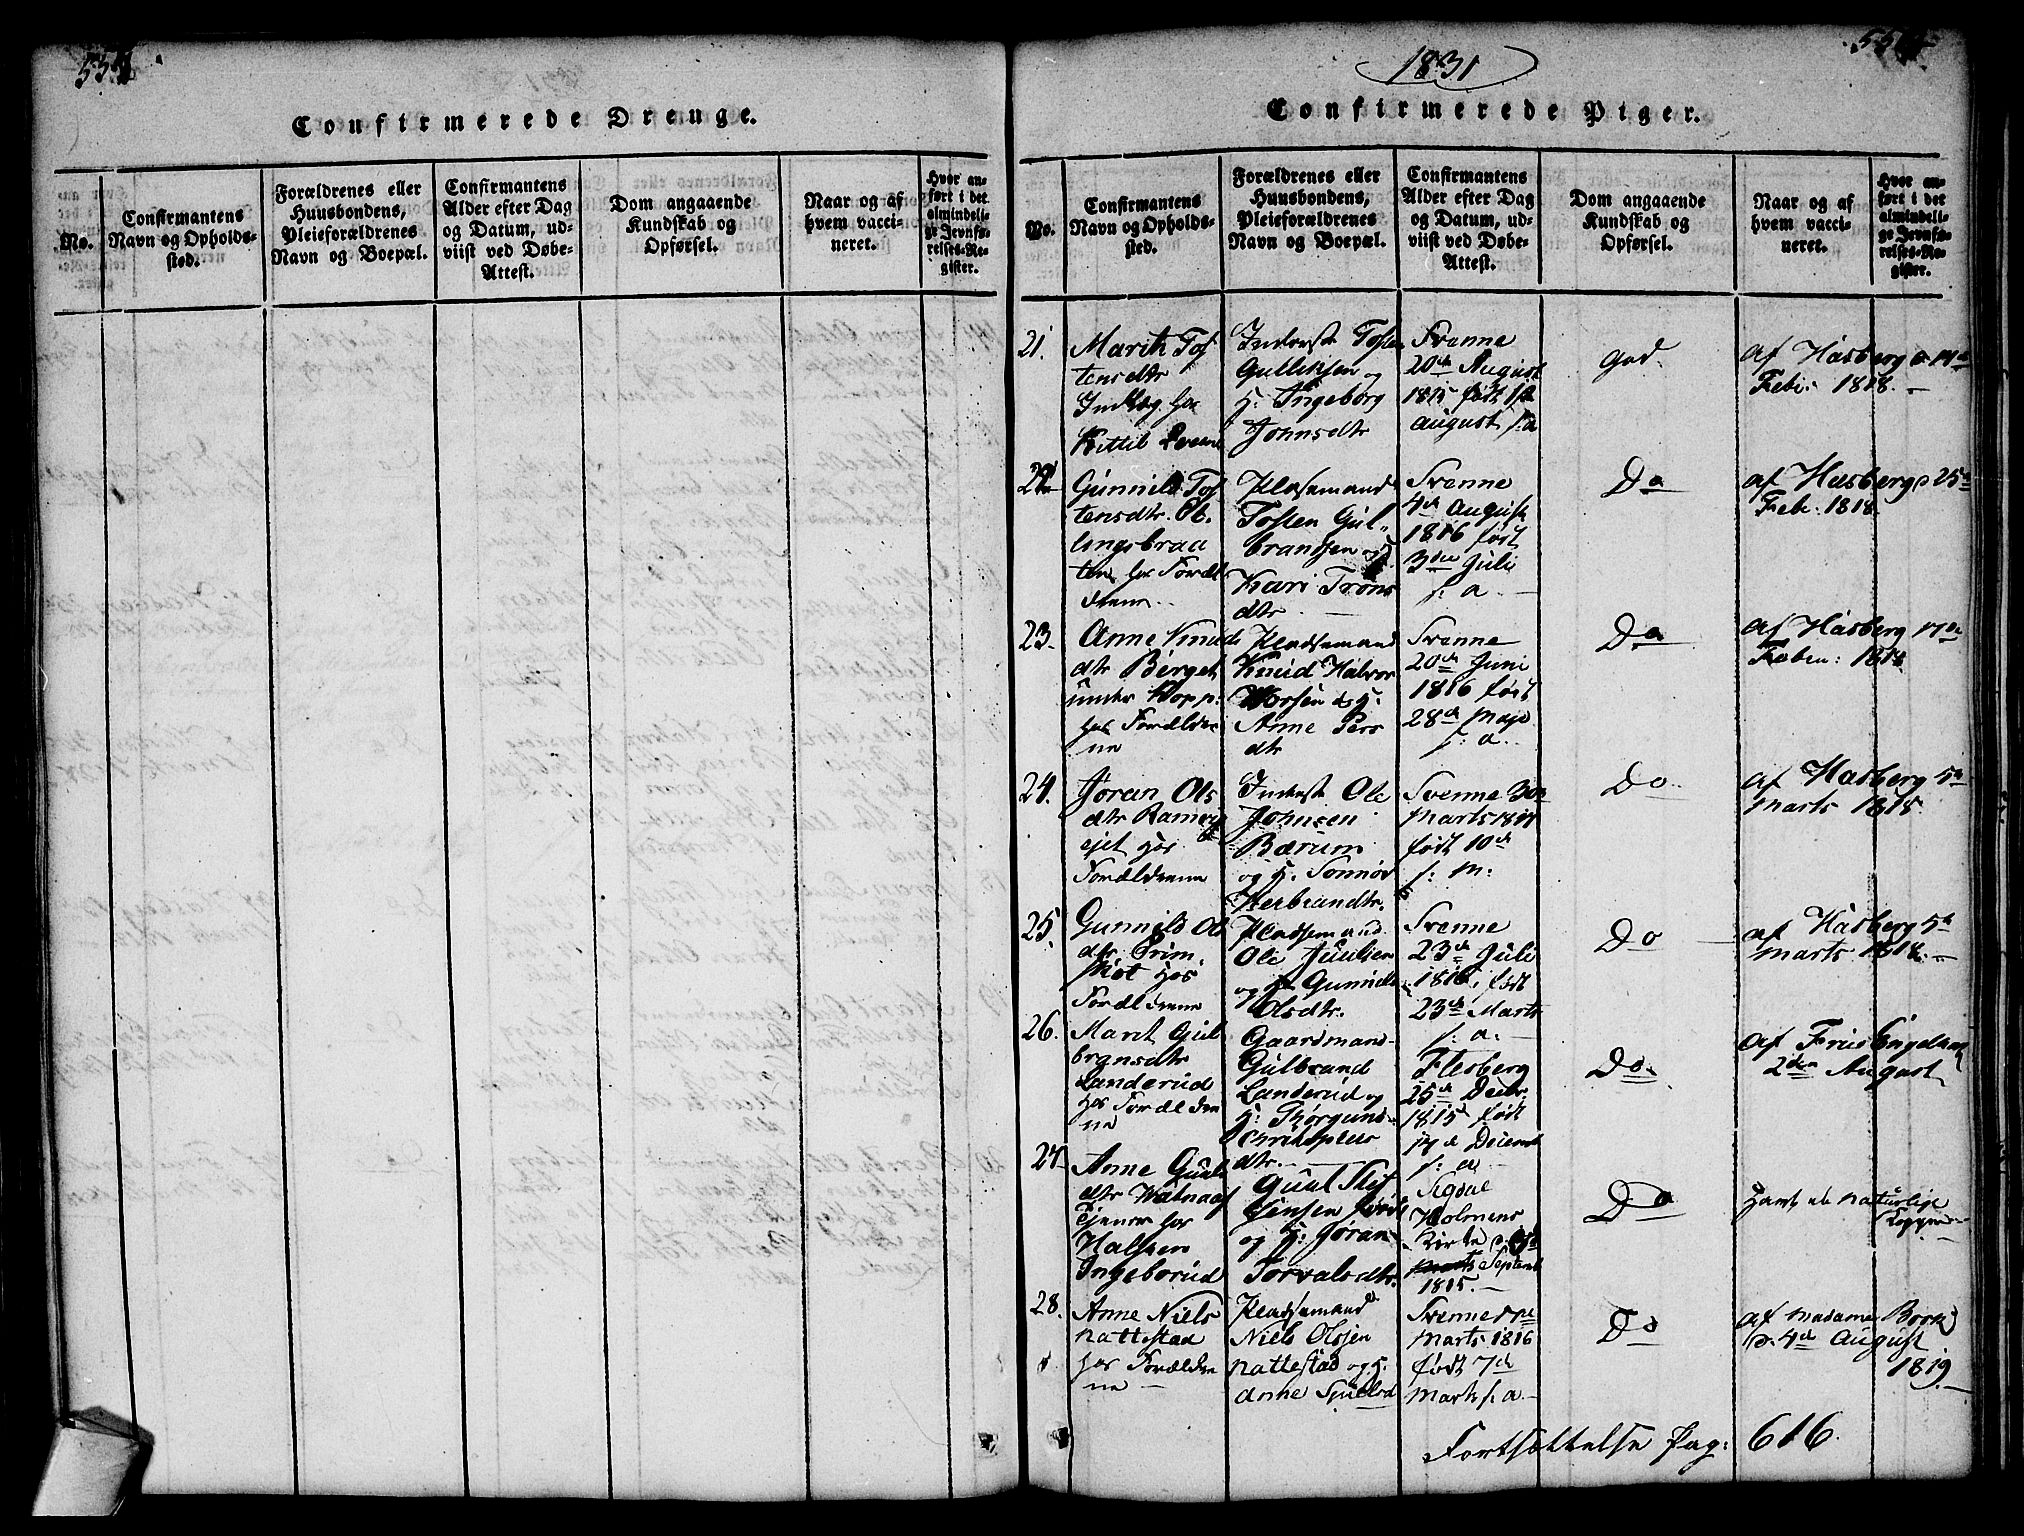 1831
Confirmerede Drenge.
No.
Confirmantens
Navn og Opholds-
sted.
Forældrenes eller
Huusbondens,
Pleieforældrenes
Navn og Boepæl.
Confirmantens
Alder efter Dag
og Datum, ud-
viist ved Døbe-
Attest.
Dom angaaende
Kundskab og
Opførsel.
Naar og af
hvem vacci-
neret.
Hvor an-
ført i det
almindeli-
ge Jevnfø-
relses-Re-
gister.
Confirmerede Piger.
No.
Confirmantens
Navn og Opholds-
sted.
Forældrenes eller
Huusbondens,
Pleieforældrenes
Navn og Boepæl.
Confirmantens
Alder efter Dag
og Datum, ud-
viist ved Døbe-
Attest.
Dom angaaende
Kundskab og
Opførsel.
Naar og af
hvem vacci-
neret.
Hvor an-
ført i det
almindeli-
ge Jevnfø-
relses-Re-
gister.
21.
Marith Tos
tensdtr
hos
Kittil
Inderst Tosten
Gulliksen og
H. Ingeborg
Johnsdtr
Svenne
20de August
1815 født
august s. a
god.
af Hasberg
Febr: 1818.
22
Gunnild Tos
tensdtr. Ol-
lingsbraa
ten hos Foræl
drene
Pladsmand
Tosten Gul-
brandsen og H
Kari Trons
dtr
Svenne
4de August
1816 født
3die Juli
s: a.
Do
af Hasberg 25de
Feb. 1818
23.
Anne Knuds
dtr Berget
under Kopp:
hos Forældre
ne
Pladsemand
Knud Halvor
Worsen og H.
Anne Pers
dtr
Svenne
20de Juni
1816 født
28de Maje
s: a.
Do
af Hasberg 17de
Feben: 1818
24.
Jøran Ols
dtr
ejet hos
Forældrene
Inderst Ole
Johnsen
Bærum
og H. Sonnøv
Herbrandtr.
Svenne
Marts 1817
født 10de
s: M:
Do
af Hasberg 5te
Marts 1818
25.
Gunnild Ols
dtr. Prim,
hos
Forældrene
Pladsemand
Ole Juulsen
og H Gunnild
Olsdtr.
Svenne
23de Juli
1816, født
23de Marts
s: a.
Do
af Hasberg 5te
Marts 1818.
26.
Marit Gul
bransdtr
Landerud
hos Forældre
ne
Gaardmand
Gulbrand
Landerud og
H: Thorgund
Christophers
dtr.
Flesberg
25de Decbr.
1815 født
14de Decemb
s: a.
Do.
af Frue Engelhar
2den August
27
Anne Guuls
dtr
tjener hos
Halsten
Ingeborud
Guul Stef
fensen
og H: Jøran
Torvalsdtr.
Sigdal
Holmens
Kirke
Septemb
1815.
Do
havt de naturlige
Kopper
28.
Anne Niels
Nattestad
hos Forældre
ne
Pladsemand
Niels Olsen
Nattestad og H.
Anne
Svenne
Marts 1816
født 7de
Marts s. a.
Do
af Madame Bork
d. 4de August
1819.
Fortsættelse Pag: 616.